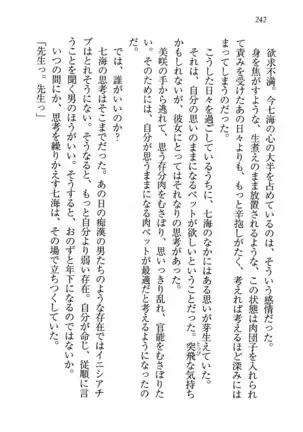 242
欲求不満。今七海の心の大半を占めているのは、そういう感情だった。
身を焦がすような、生煮えのまま放置されるような、この状態は肉団子を入れられ
て責みを受けつづけたあの日々よりも、もっと辛抱しがたく、考えれば考えるほど深みには
まっていくようだった。
こうした日々を過ごしているうちに、七海のなかにはある思いが芽生えていた。
それは、自分の思うままになるペットが欲しいということだった。突飛な気持ち
かもしれないが、彼女にとってはそれなりの思考があった。
美咲の手から逃れて、思う存分肉をむさぼり、思いっきり乱れ、官能をむさぼりた
い。そのためには、自分が思うままになる肉ペットが最適だと考えるようになったの
だ。
では、誰がいいのか？
七海の思考はそこまでだった。あの日の痴漢の男たちのような存在ではイニシアチ
ブはとれそうにない。そうなると、もっと自分より弱い存在。自分が命じ、従順に言
うことを聞く男のほうがいい。そうすると、おのずと年下になるのではないか。
いつの間にか、思考を繰りかえす七海は、その場で立ちつくしていた。
「先生っ。先生っ」